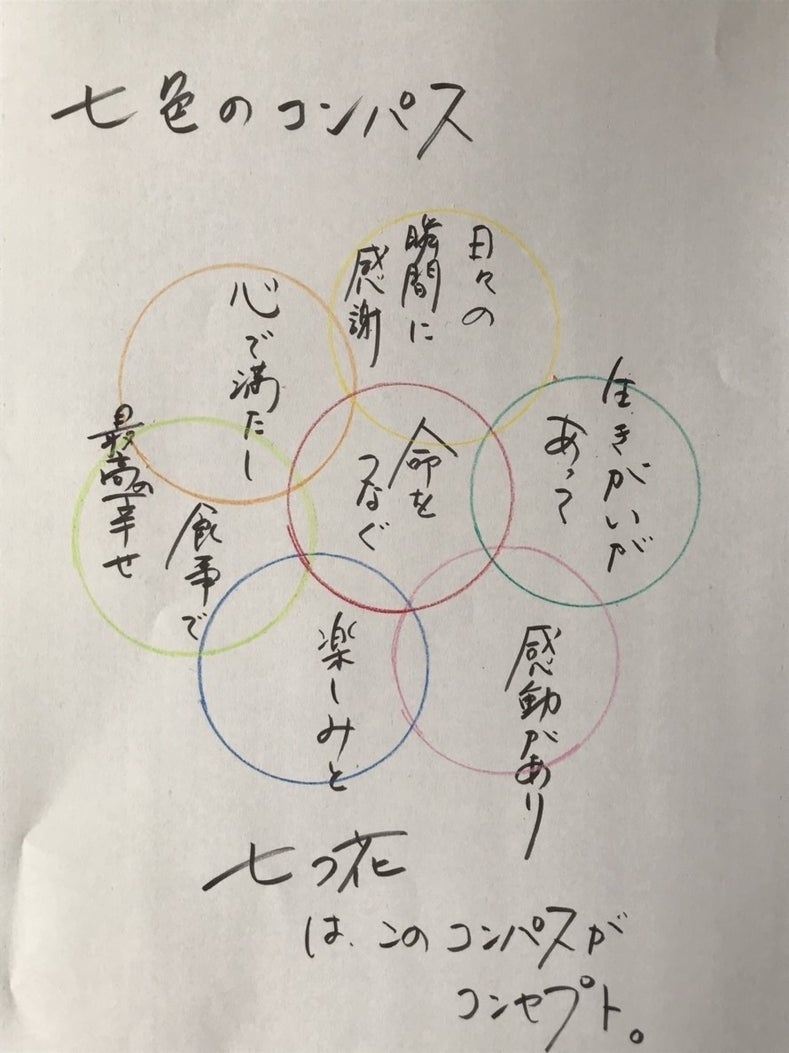 七色のコンパス
日々の
瞬間に
感謝
生きがいが
あって
感動があり
楽しみと
命を
つなぐ
食事で
心で満たし
最高の幸せ
七つ花
は、このコンパスが
コンセプト。